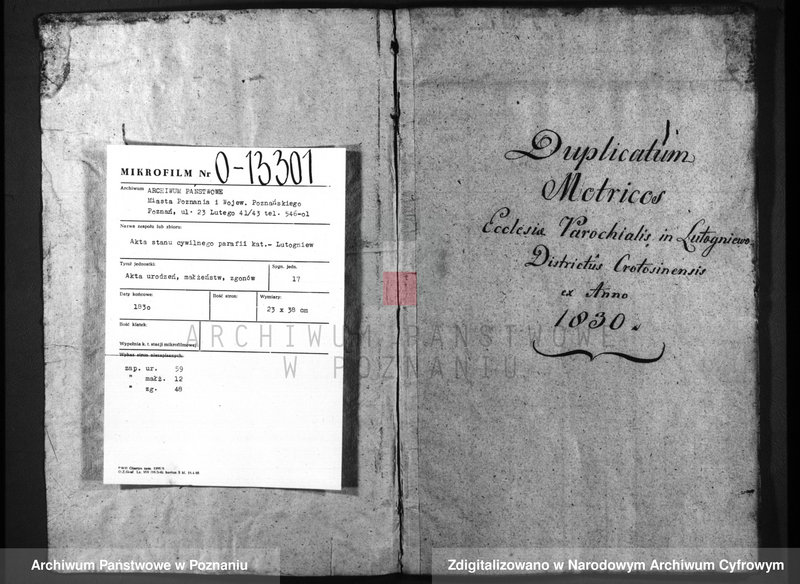 MIKROFILM Nr O-13301
Archiwum ARCHIWUM PAŃSTWOWE
Miasta Poznania i Wojew. Poznańskiego
Poznań, ul. 23 Lutego 41/43 tel. 546-01
Nazwa zespołu lub zbioru:
Akta stanu cywilnego parafii kat.- Lutogniew
Tytuł jednostki: Sygn. jedn.
Akta urodzeń, małżeństw, zgonów 17
Daty końcowe: Ilość stron: Wymiary:
1830 23 x 38 cm
Ilość klatek:
Wypełnia k. t. stacji mikrofilmowej
Wykaz stron niezapisanych:
zap. ur. 59
" małż. 12
" zg. 48
Duplicatum
Motrices
Ecclesiæ Parochialis in Lutogniewo
Districtûs Crotosinensis
ex Anno
1830.
ARCHIWUM PAŃSTWOWE
W POZNANIU
Archiwum Państwowe w Poznaniu
Zdigitalizowano w Narodowym Archiwum Cyfrowym